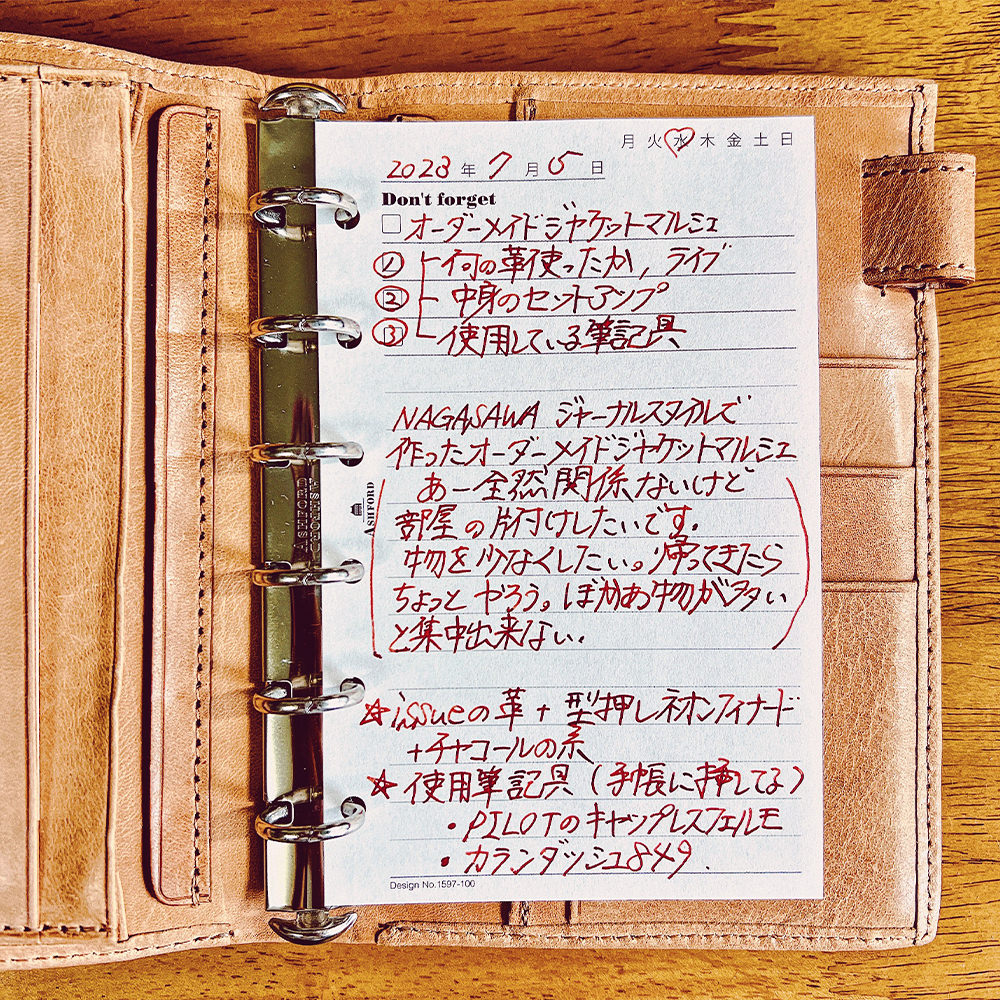 月 火 水 木 金 土 日
2023 年 7 月 5 日
Don't forget
□ オーダーメイドジャケットマルシェ
① 何の革使ったか, ライブ
② 中身のセットアップ
③ 使用している筆記具
NAGASAWA ジャーナルスタイルで
作ったオーダーメイドジャケットマルシェ
あー全然関係ないけど
部屋の片付けしたいです。
物を少なくしたい。帰ってきたら
ちょっとやろう。ぼかあ物が多い
と集中出来ない。
☆issueの革+型押しネオンフィナード
+チャコールの糸
☆使用筆記具(手帳に挿してる)
・PILOTのキャップレスフェルモ
・カランダッシュ849.
Design No.1597-100
ASHFORD
ASHFORD